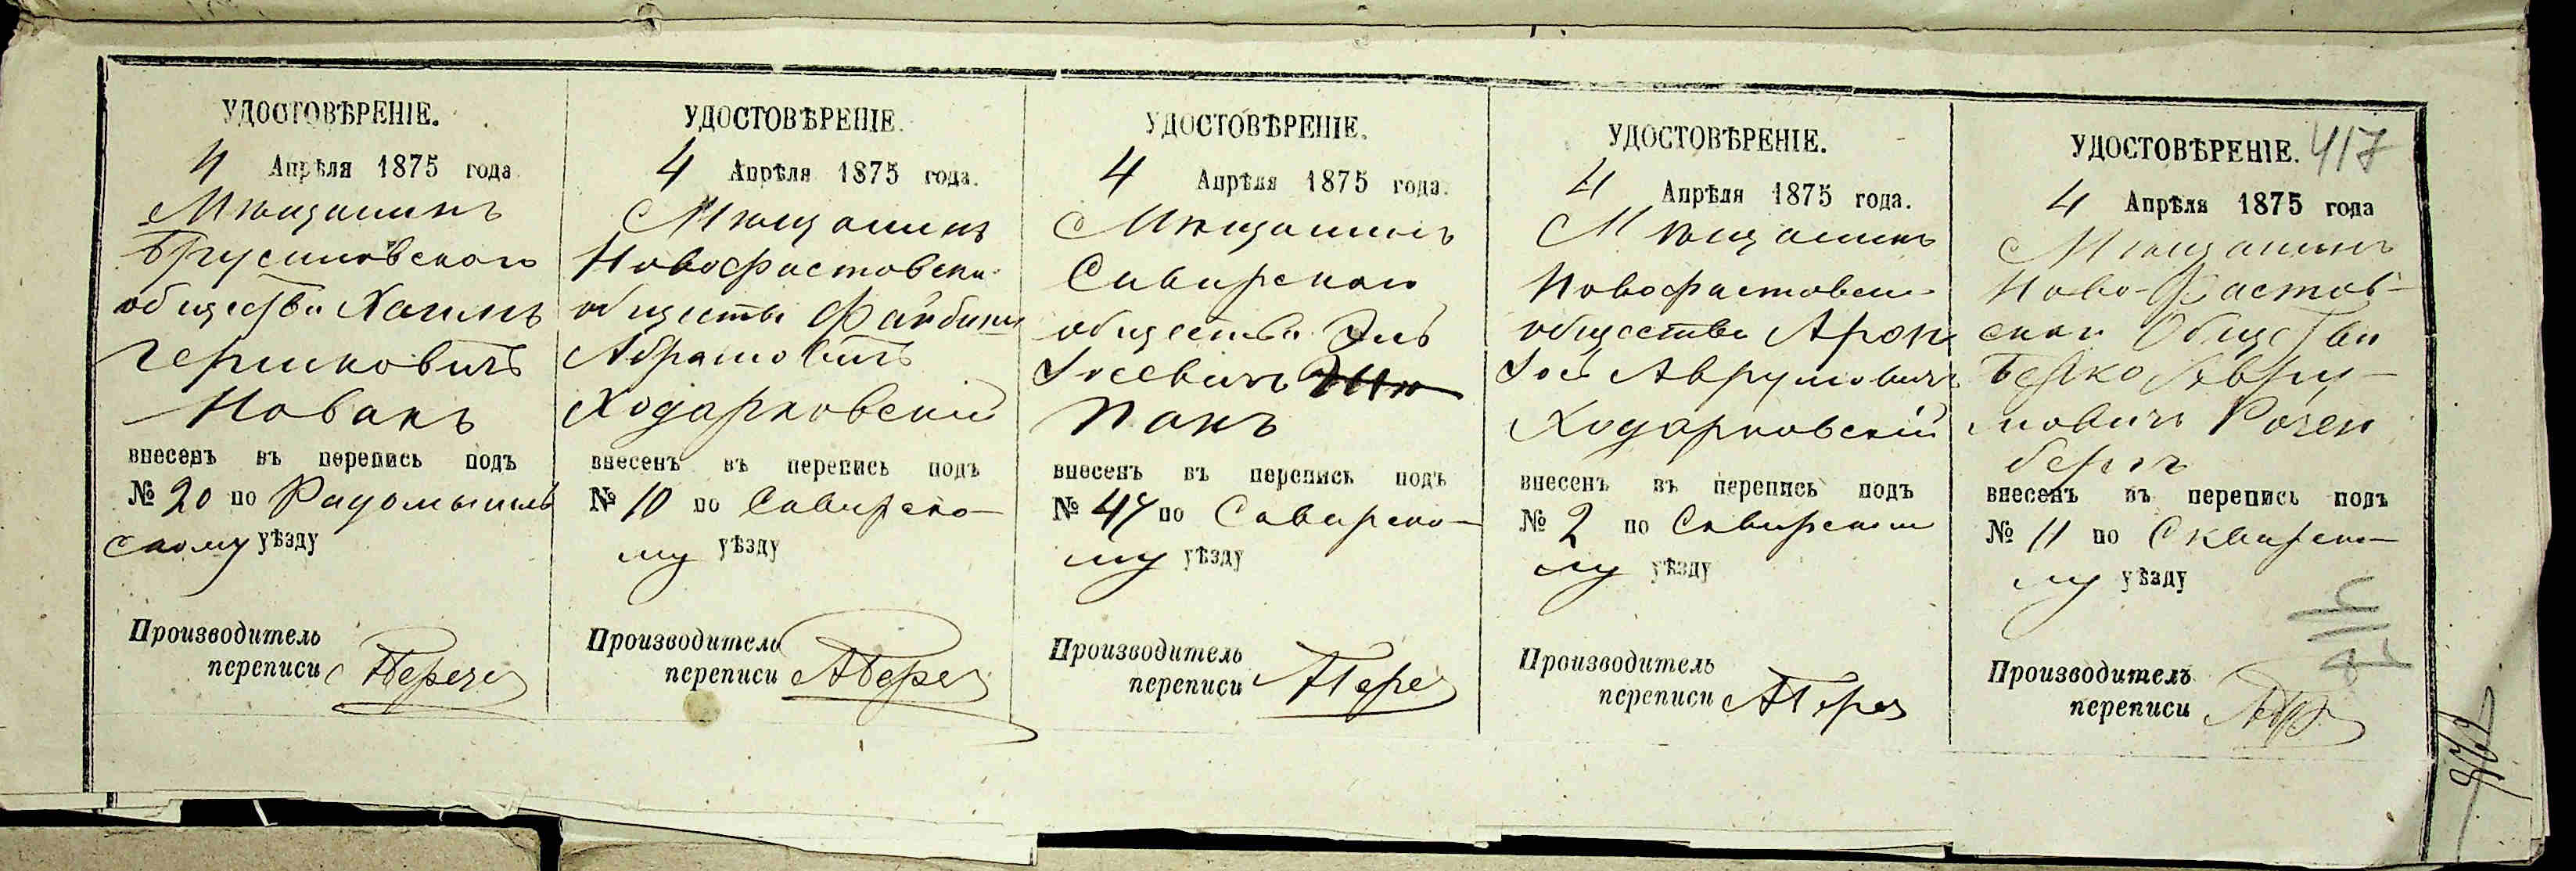 УДОСТОВѢРЕНІЕ.
4 Апрѣля 1875 года
Мѣщанинъ
Брусиловскаго
общества Хаимъ
Гершковичъ
Новакъ
внесенъ въ перепись подъ
№ 20 по Радомысль
скому уѣзду
Производитель
переписи
УДОСТОВѢРЕНІЕ.
4 Апрѣля 1875 года.
Мѣщанинъ
Новофастовска
общества Файбишъ
Абрамовичъ
Ходарковскій
внесенъ въ перепись подъ
№ 10 по Сквирско-
му уѣзду
Производитель
переписи
УДОСТОВѢРЕНІЕ.
4 Апрѣля 1875 года.
Мѣщанинъ
Сквирскаго
общества Эль
Іосевичъ
Панъ
внесенъ въ перепись подъ
№ 47 по Сквирско-
му уѣзду
Производитель
переписи
УДОСТОВѢРЕНІЕ.
4 Апрѣля 1875 года.
Мѣщанинъ
Новофастовск
общества Арон
Іос Аврумовичъ
Ходарковскій
внесенъ въ перепись подъ
№ 2 по Сквирском
му уѣзду
Производитель
переписи
УДОСТОВѢРЕНІЕ. 417
4 Апрѣля 1875 года
Мѣщанинъ
Ново-Фастов-
скаго Общества
Берко Авру-
мовичъ Розен
бергъ
внесенъ въ перепись подъ
№ 11 по Сквирско-
му уѣзду
Производитель
переписи